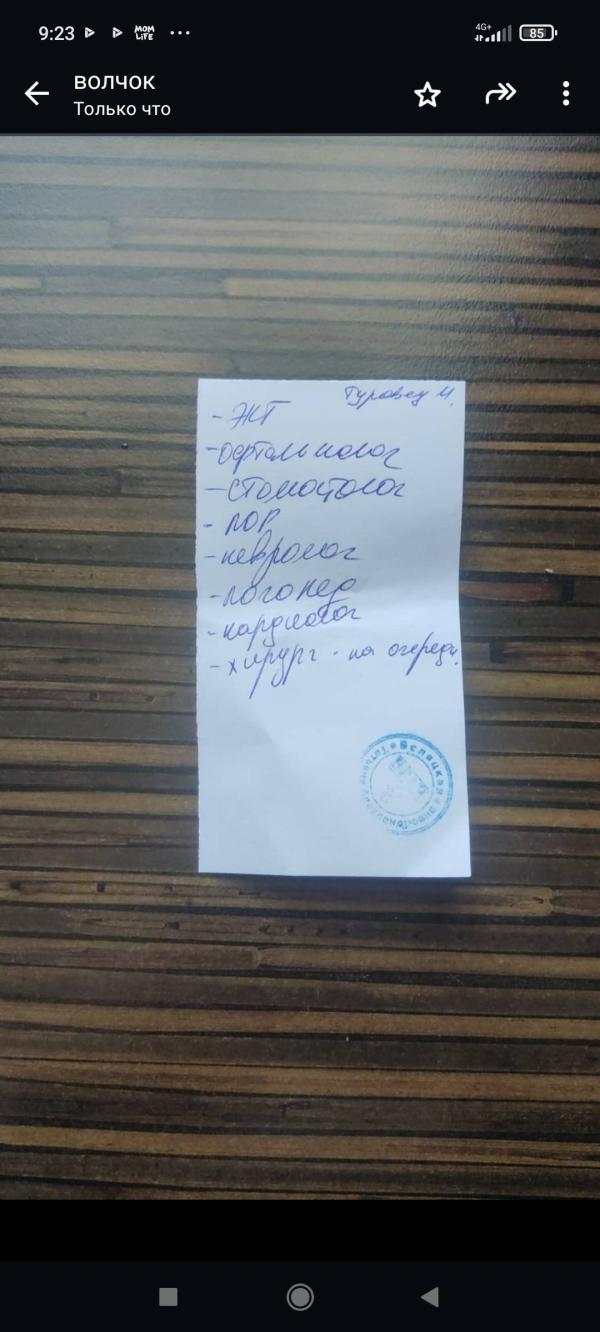 9:23
MOM LIFE
4G+
85
волчок
Только что
Туровец М.
- ЭКГ
- офтальмолог
- стоматолог
- ЛОР
- невролог
- логопед
- кардиолог
- хирург - на очереди.